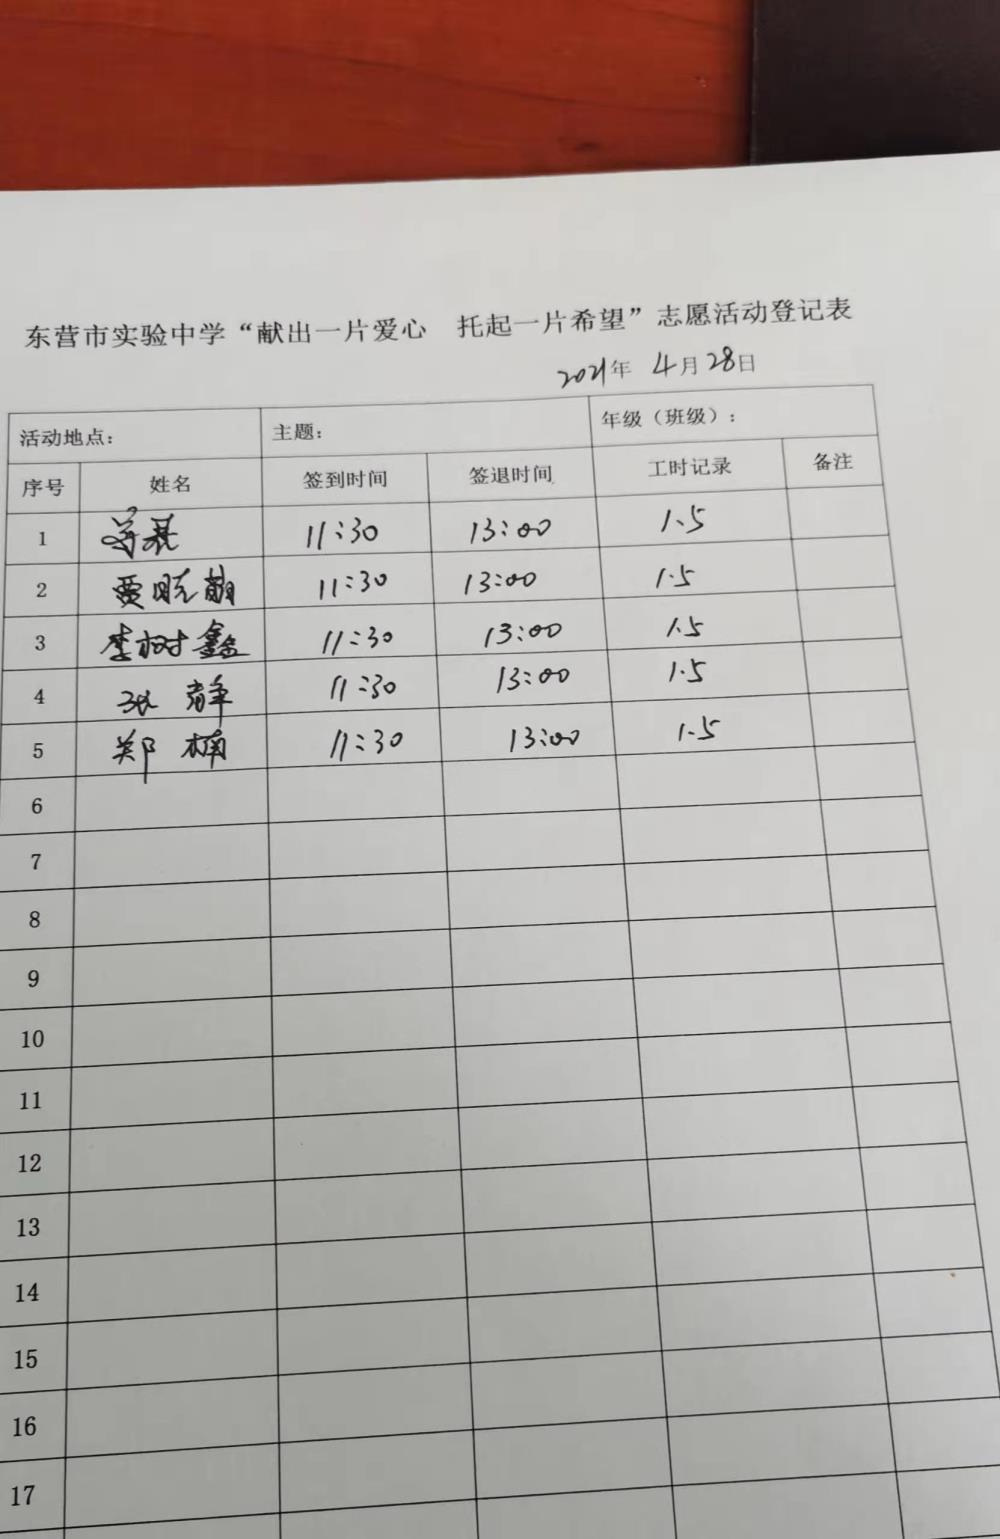 东营市实验中学“献出一片爱心 托起一片希望”志愿活动登记表
2021年 4月28日
活动地点： 主题： 年级（班级）：
序号 姓名 签到时间 签退时间 工时记录 备注
1 11:30 13:00 1.5
2 贾晓萌 11:30 13:00 1.5
3 李树鑫 11:30 13:00 1.5
4 张静 11:30 13:00 1.5
5 郑楠 11:30 13:00 1.5
6
7
8
9
10
11
12
13
14
15
16
17